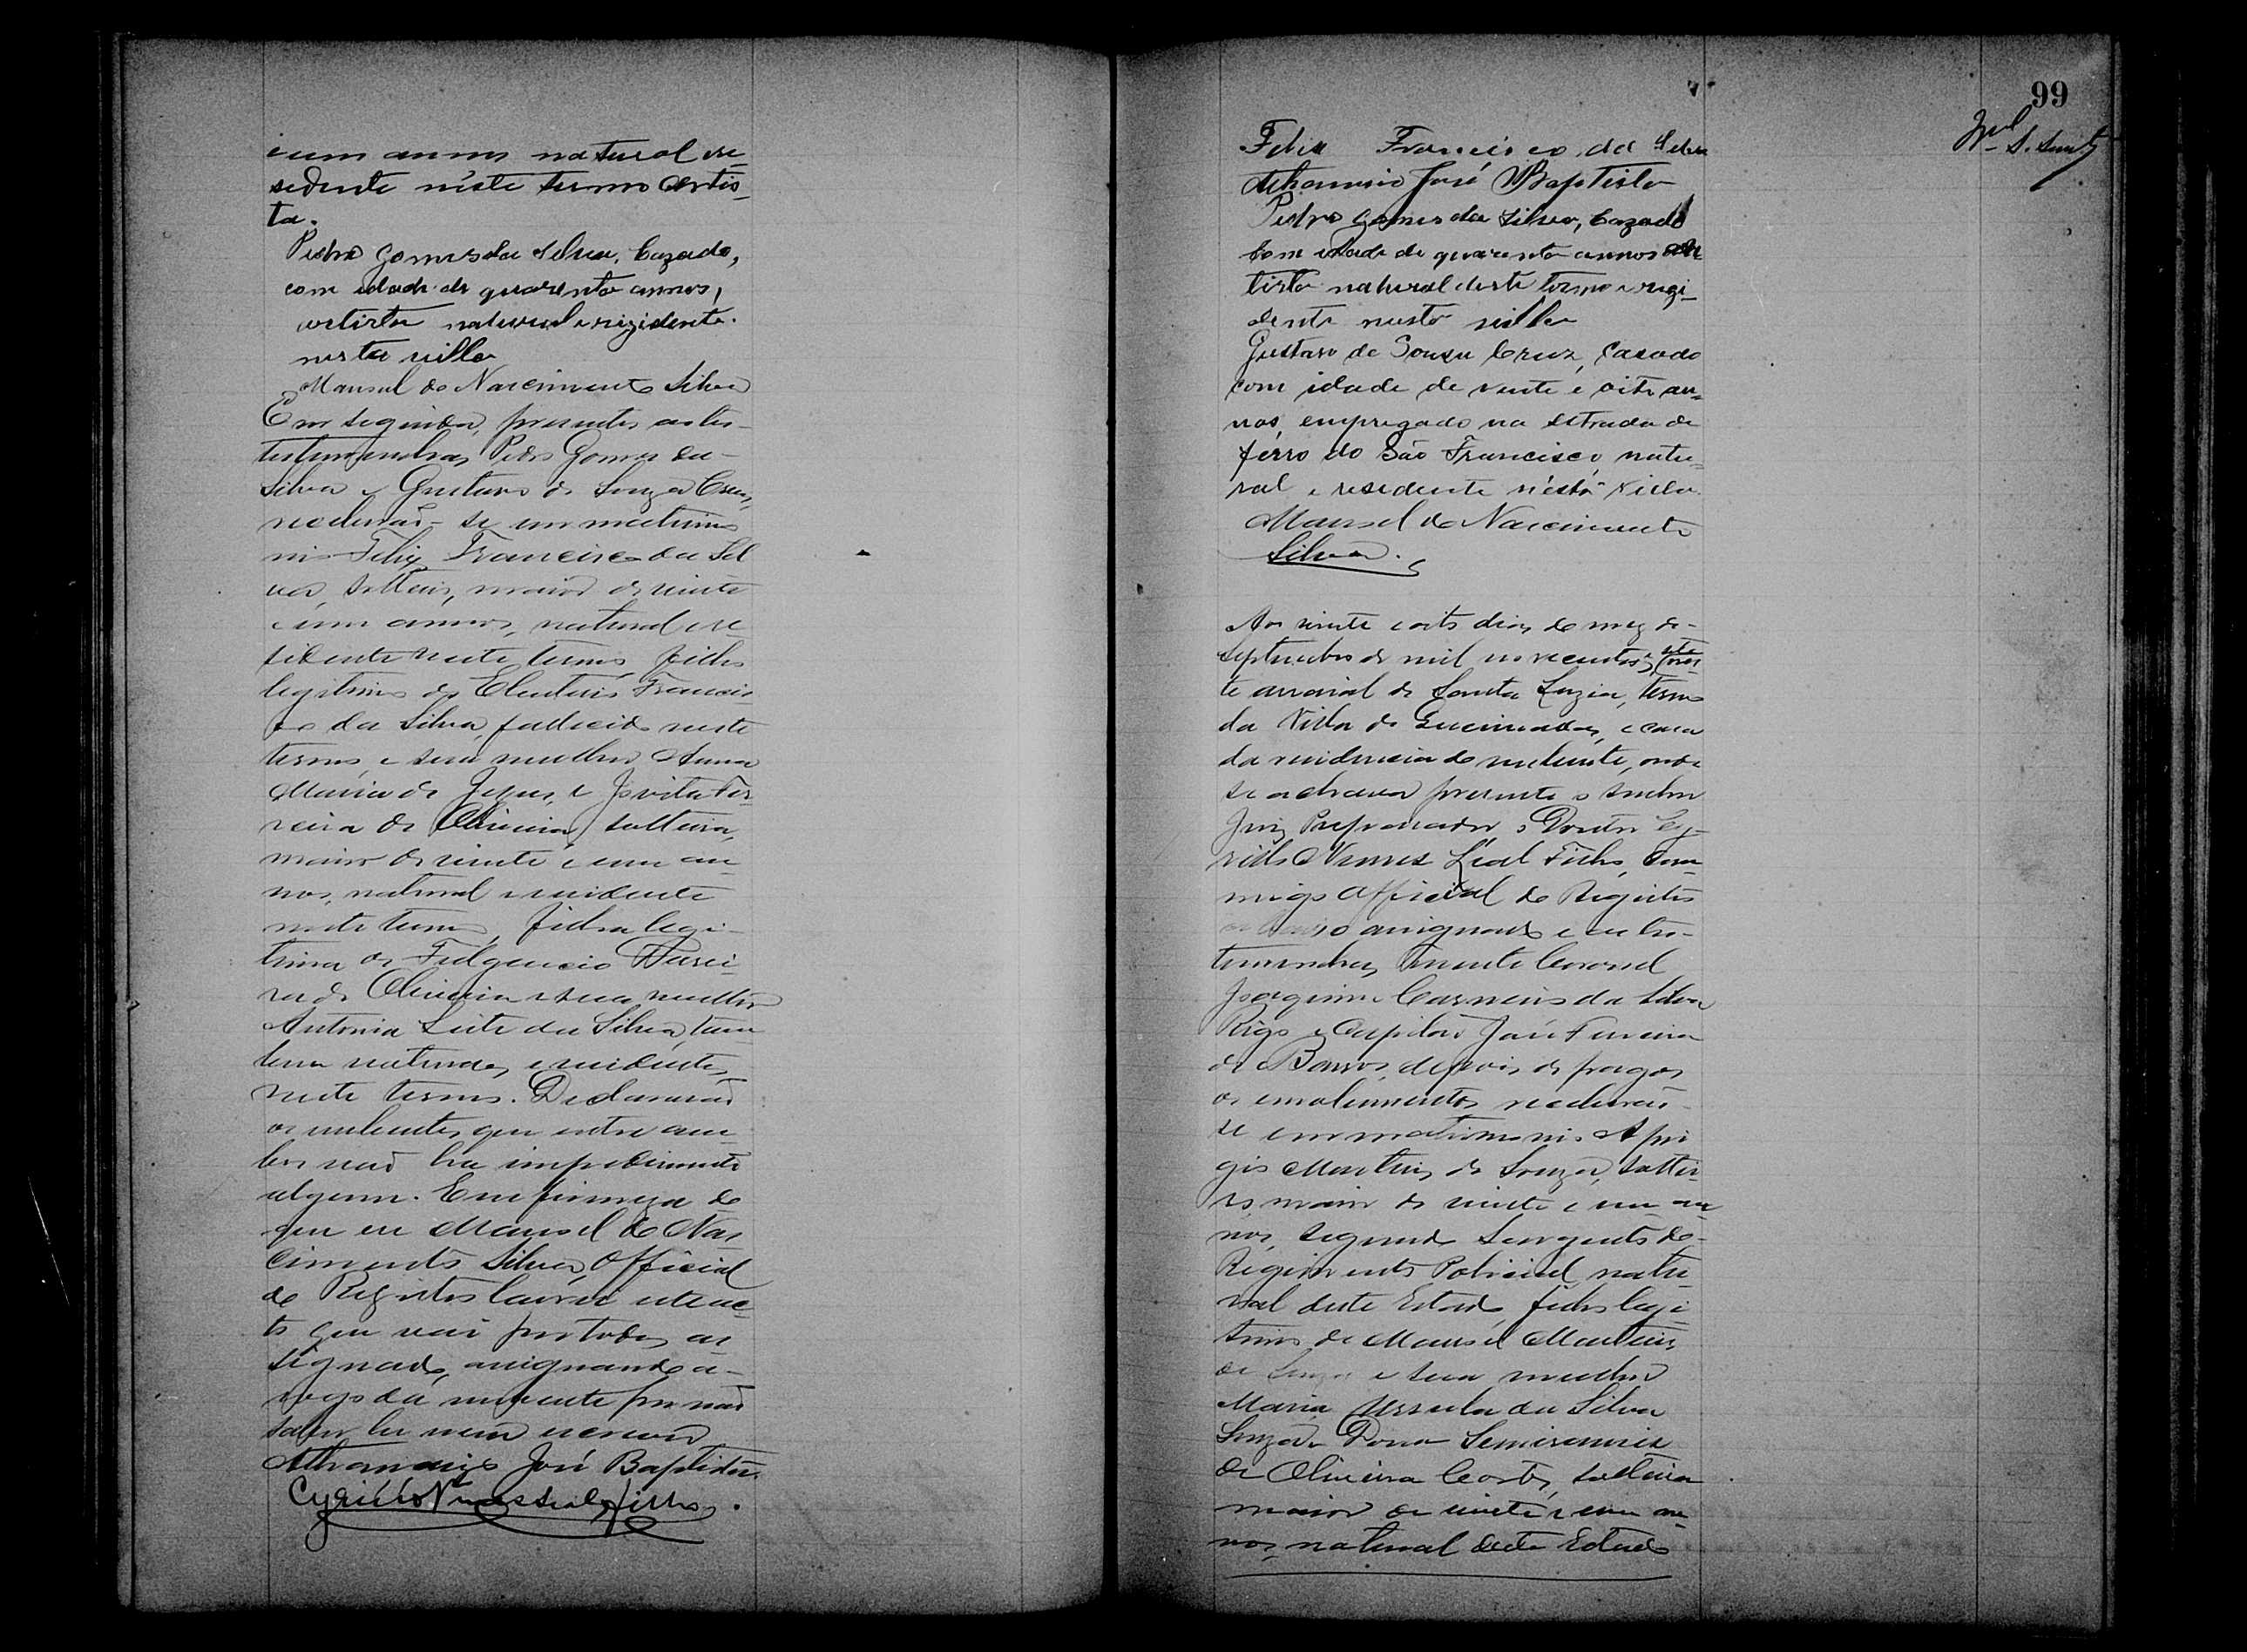 e um annos natural re-
sedente néste termo Artis-
ta.
Pedro Gomes da Silva, Cazado,
com idade de quarenta annos,
artista natural e rizidente
nesta villa
Manoel do Nascimento Silva
Em seguida, presentes as tes-
temunhas Pedro Gomes da
Silva e Gustavo de Souza Cruz,
receberão-se em matrimo
nio Felix Francisco da Sil
va, solteiro, maior de vinte
e um annos, natural e re
sidente neste termo, filho
legitimo de Eleuterio Francis
co da Silva, fallecido neste
termo, e sua mulher Anna
Maria de Jesus, e Jovita Per
reira de Oliveira, solteira,
maior de vinte e um an
nos, natural e residente
neste termo, filha legi-
tima de Fulgencio Perei-
ra de Oliveira e sua mulher
Antonia Leite da Silva, tam
bem naturaes e residentes
neste termo. Declararão
os nubentes que entre am
bos não ha impedimento
algum. Em firmeza do
que eu Manoel do Nas
cimento Silva, Official
do Registro lavrei este ac-
to que vai por todos as
signado, assignando a
rogo da nubente por não
saber ler nem escrever
Athanasio José Baptista.
Cyrillo Nunes Leal Filho.
99
Felix Francisco da Silva
Athanasio José Baptista
Pedro Gomes da Silva, Cazado
com idade de quarenta annos ar
tista natural deste termo e rezi-
dente nesta villa
Gustavo de Souza Cruz, Casado
com idade de vinte e oito an-
nos, empregado na estrada de
ferro do São Francisco, natu-
ral e residente n'esta Villa.
Manoel do Nascimento
Silva.
Aos vinte e oito dias do mez de
Septembro de mil novecentos e sete
te arraial de Santa Luzia, termo
da Villa de Queimadas, e casa
da residencia do nubente, onde
se achava presente o senhor
Juiz Preparador, o Doutor Cy-
rillo Nunes Leal Filho, com-
migo Official do Registro
abaixo assignado e as tes-
temunhas, Tenente Coronel
Joaquim Carneiro da Silva
Rego e Capitão José Ferreira
de Barros, depois de pagos
os emolumentos receberão-
se em matrimonio Apri
gio Martins de Souza, soltei-
ro, maior de vinte e um an
nos, segundo Sargento do
Regimento Policial, natu
ral deste Estado, filho legi
timo de Manoel Martins
de Souza e sua mulher
Maria Ursula da Silva
Souza e Dona Semiramis
de Oliveira Cortes, solteira
maior de vinte e um an
nos, natural deste Estado